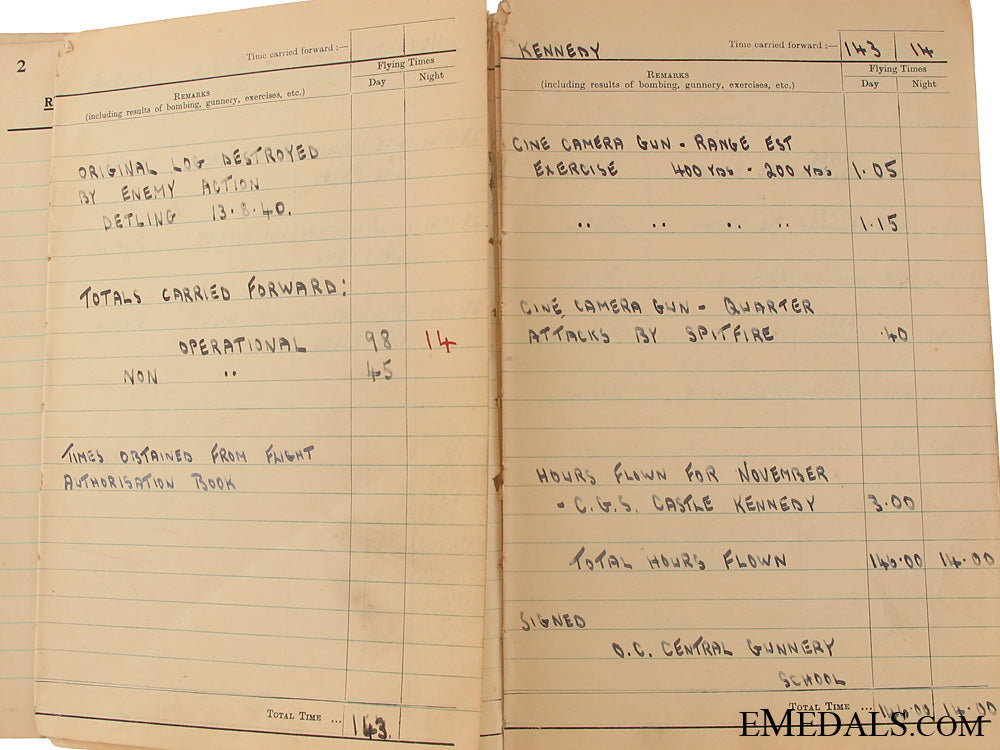 2
R
Time carried forward :—
Flying Times
REMARKS
(including results of bombing, gunnery, exercises, etc.)
Day Night
ORIGINAL LOG DESTROYED
BY ENEMY ACTION
DETLING 13.8.40.
TOTALS CARRIED FORWARD:
OPERATIONAL 98 14
NON " 45
TIMES OBTAINED FROM FLIGHT
AUTHORISATION BOOK
TOTAL TIME ... 143.
KENNEDY Time carried forward :— 143 14
Flying Times
REMARKS
(including results of bombing, gunnery, exercises, etc.)
Day Night
CINE CAMERA GUN - RANGE EST
EXERCISE 400 YDS - 200 YDS 1.05
" " " " 1.15
CINE CAMERA GUN - QUARTER
ATTACKS BY SPITFIRE .40
HOURS FLOWN FOR NOVEMBER
- C.G.S. CASTLE KENNEDY 3.00
TOTAL HOURS FLOWN 146.00 14.00
SIGNED
O.C. CENTRAL GUNNERY
SCHOOL
TOTAL TIME ... 146.00 14.00
EMEDALS.COM